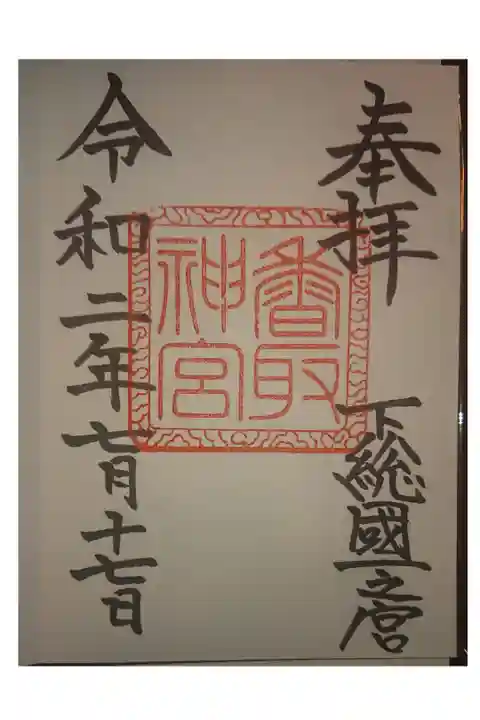 奉拝
下総國一之宮
香取
神宮
令和二年七月十七日